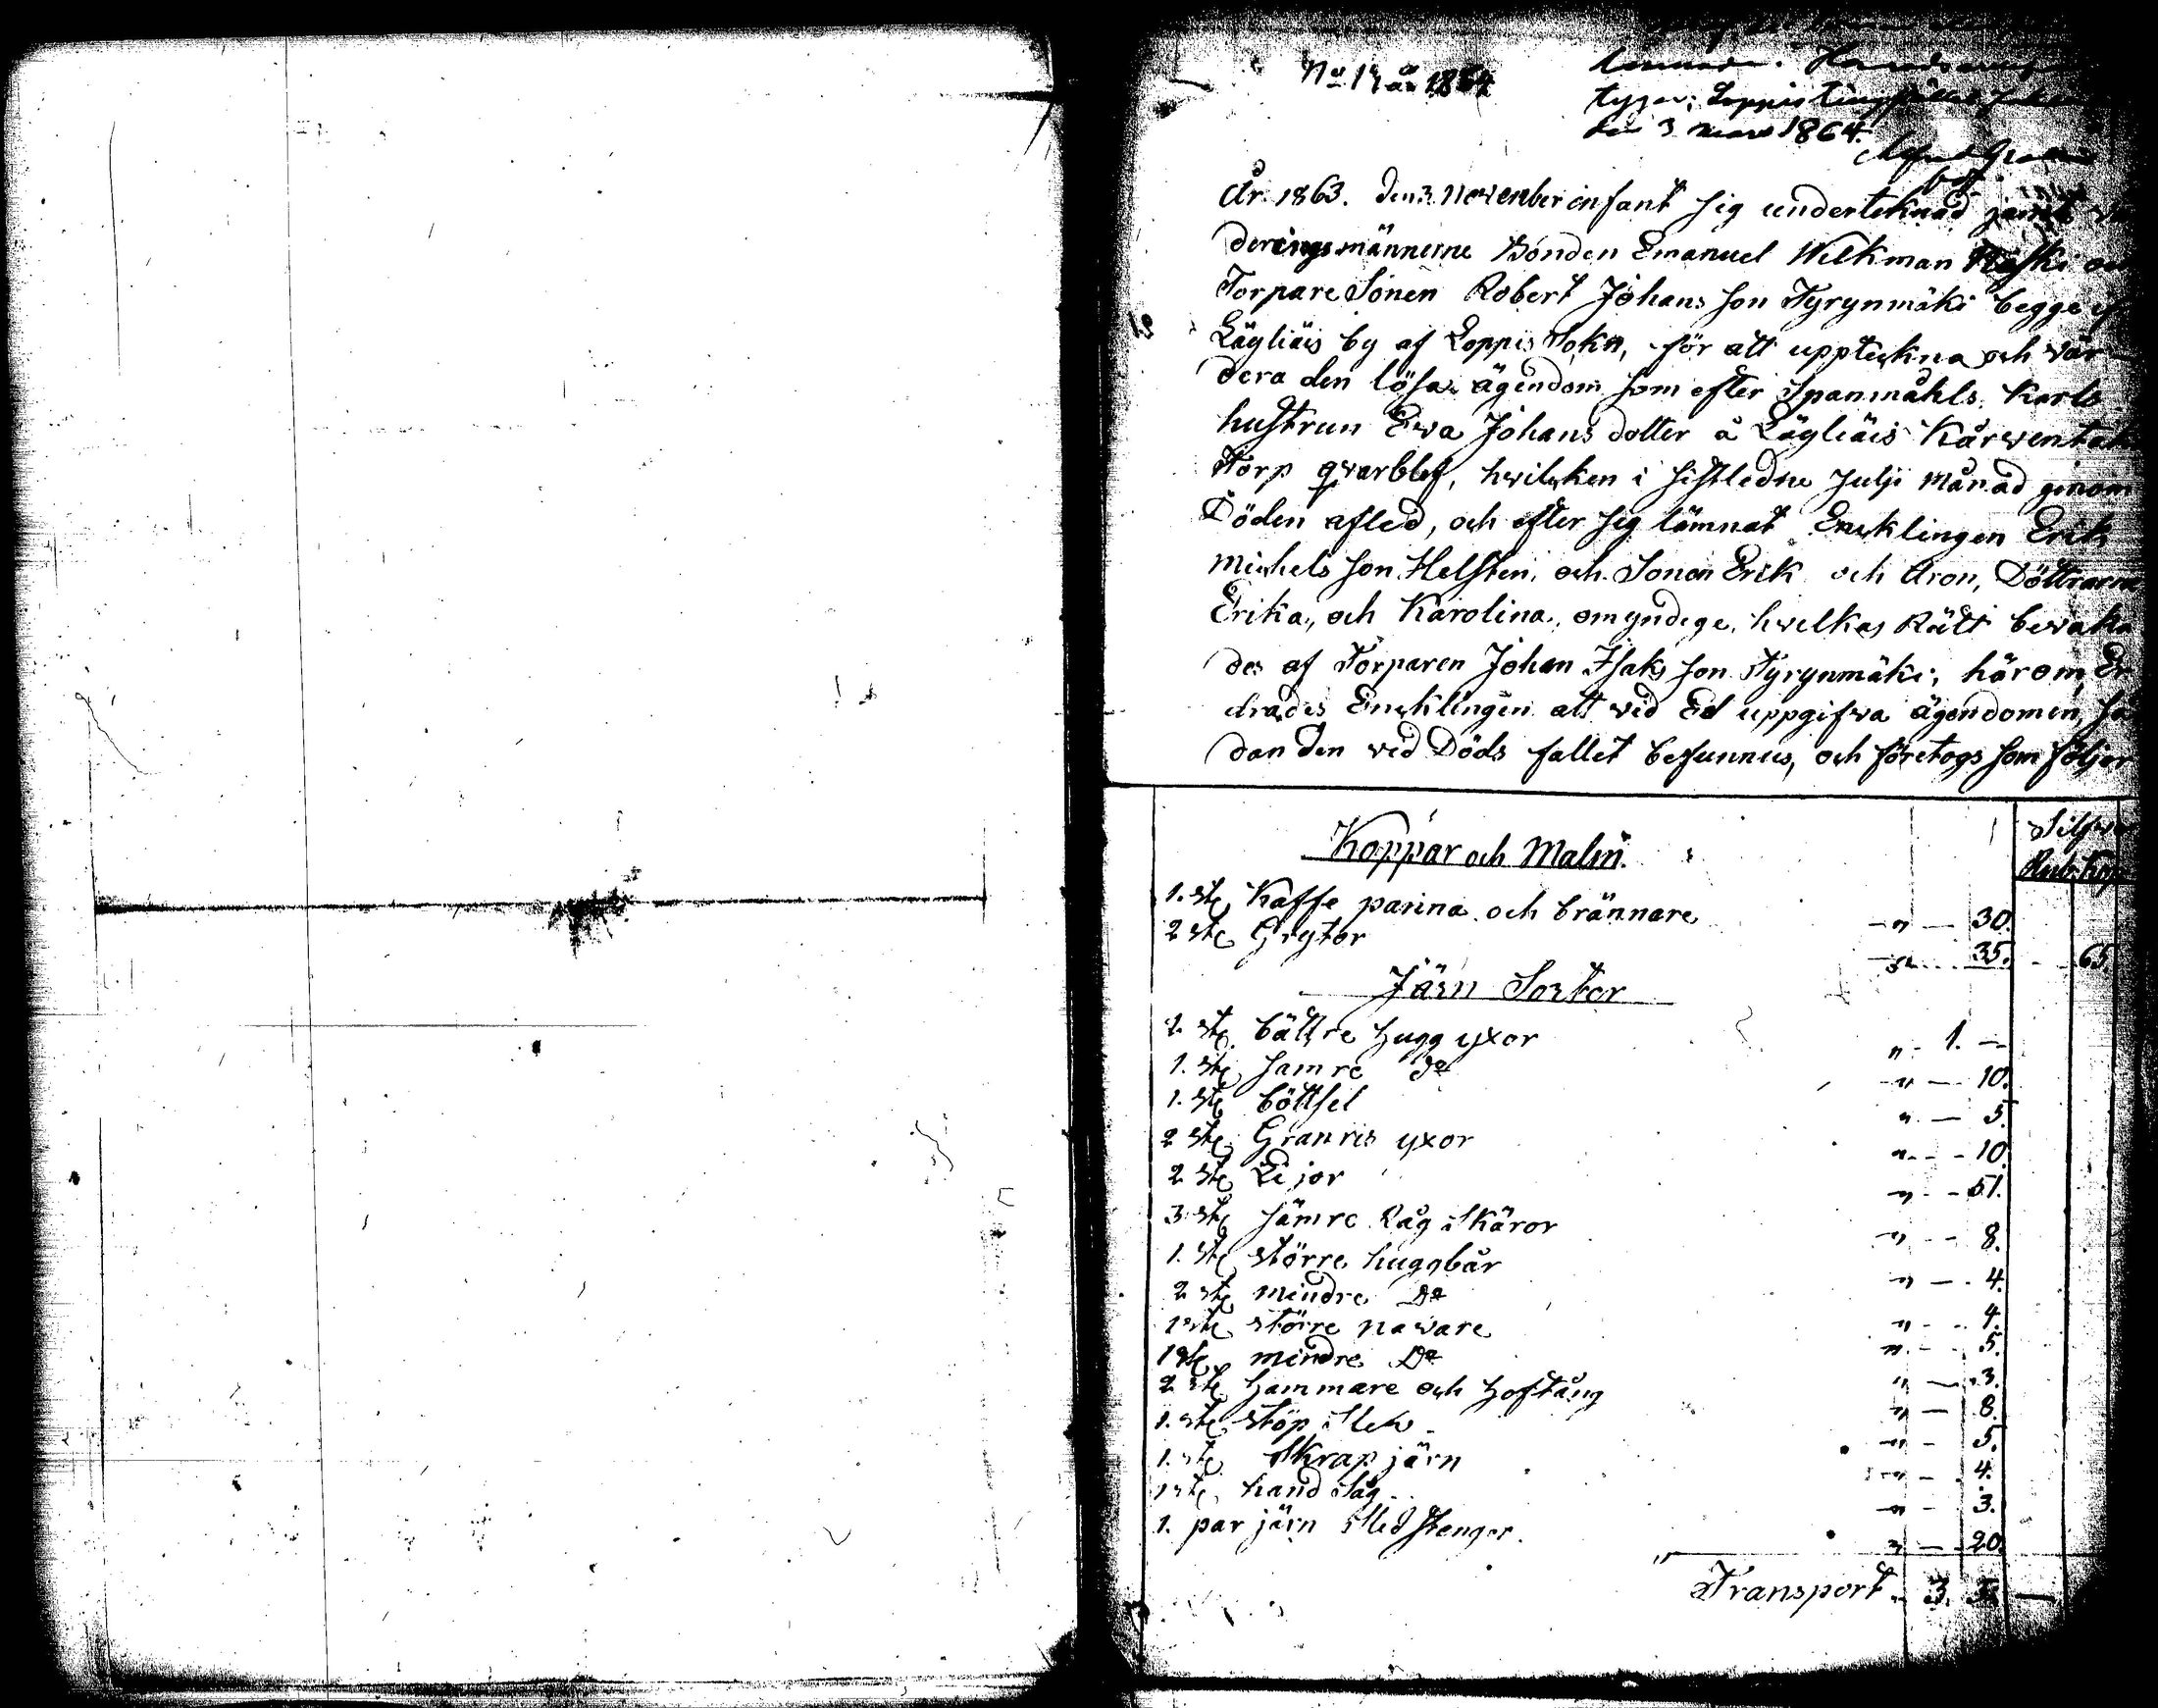 No 17 år 1864
den 3 mars 1864.
År 1863. den 3 November infant sig underteknad jämte
deringsmännerne Bonden Emanuel Welkman
Torpare Sonen Robert Johans son Tyrynmäki begge
Läyliäis by af Loppis Sokn, för att uppteckna och vär-
dera den lösa ägendom som efter Spanmåhls Karls
hustrun Ewa Johans dotter å Läyliäis
Torp qvarblef, hvilcken i sistledne Julji Månad genom
Döden afled, och efter sig lämnat Encklingen Erik
Michels son Helsten, och Sonen Erik och Aron, Döttrarne
Erika, och Karolina, omyndige, hvilkas Rätt bevaka
des af Torparen Johan Isaks son Tyrynmäki, härom
drades Encklingen att vid Ed uppgifva ägendomen, så
dan den vid Döds fallet befunnits, och företogs som följer
Silfver
Koppar och Malm.
Rub. Kop
1. stc Kaffe panna och brännare " — 30.
2 stc Grytor " — 35. 65
Järn Sortor
2 stc bättre hugg yxor " 1. —
1. stc Samre Do " — 10.
1. stc böttsel " — 5.
2 stc Granris yxor " — 10.
2 stc Lijor " — 51.
3 stc Sämre Råg Skäror " — 8.
1. stc större huggbår " — 4.
2 stc mindre Do " — 4.
1 stc större naware " — 5.
1 stc mindre Do " — 3.
2 stc Hammare och Hoftång " — 8.
1. stc stöp Slev " — 5.
1. stc Skrap järn " — 4.
1 stc hand Såg " — 3.
1. par järn Sled stenger. " — 20.
Transport 3.